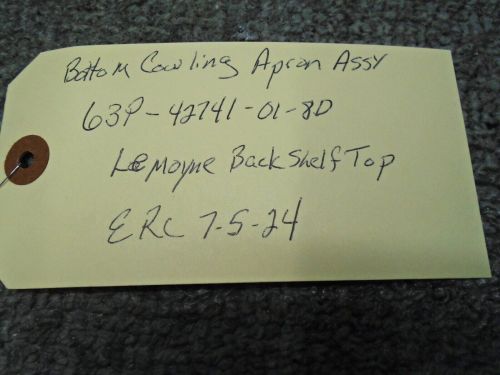 Bottom Cowling Apron Assy
63P-42741-01-8D
Lemoyne Back Shelf Top
ERC 7-5-24